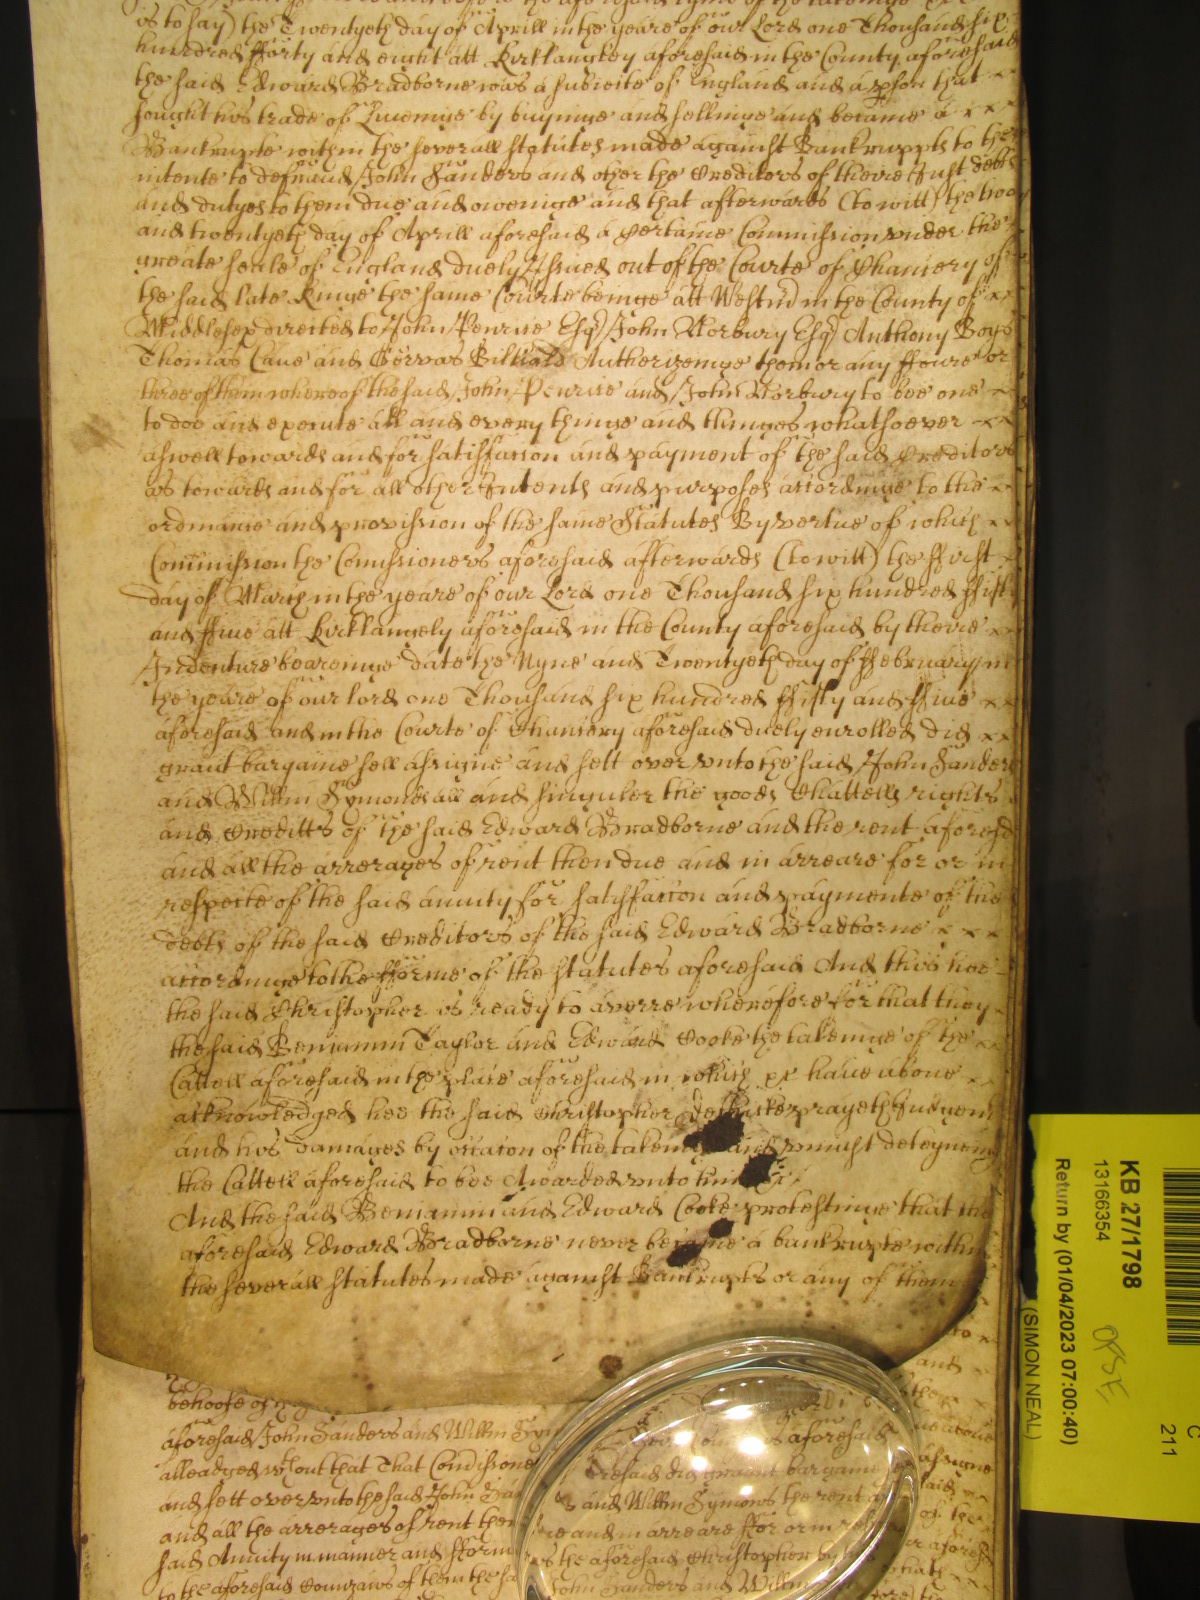 is to say) the Twentyeth day of Aprill in the yeare of our Lord one Thousand six
hundred fforty and eight att Kirklangley aforesaid in the County aforesaid
the said Edward Bradborne was a subiecte of England and a pson that
sought his trade of Liveinge by buyinge and sellinge and became a x x x
Bankrupte within the severall statutes made against Bankrupts to the
intente to defraud John Sanders and other the Creditors of theire Just debts
and dutyes to them due and oweinge and that afterwards (to witt) the two
and twentyeth day of Aprill aforesaid a Certaine Commission under the
greate seale of England duely Issued out of the Courte of Chancery of
the said late Kinge the same Courte beinge att Westmr in the County of
Middlesex directed to John Penrice Esqr John Norbury Esqr Anthony Boys
Thomas Cave and Gervas Authorizeinge them or any ffoure or
three of them whereof the said John Penrice and John Norbury to bee one
to doe and execute all and every thinge and thinges whatsoever
aswell towards and for satisfaccon and payment of the said Creditors
as towards and for all other Intents and purposes accordinge to the
ordinance and provission of the same Statutes By vertue of which
Commission the Comissioners aforesaid afterwards (to witt) the ffirst
day of March in the yeare of our Lord one Thousand six hundred ffifty
and ffive att Kirklangely aforesaid in the County aforesaid by theire
Indenture beareinge date the Nyne and Twentyeth day of ffebruary in
the yeare of our lord one Thousand six hundred ffifty and ffive x x
aforesaid and in the Courte of Chancery aforesaid duely enrolled did x x
graunt bargaine sell assigne and sett over unto the said John Sanders
and Willm Symonds all and singuler the goods Chattells rights
and Creditts of the said Edward Bradborne and the rent aforesd
and all the arrerages of rent then due and in arreare for or in
respecte of the said anuity for satisfaccon and paymente of the
debts of the said Creditors of the said Edward Bradborne x x x
accordinge to the fforme of the statutes aforesaid And this hee
the said Christopher is ready to averre wherefore for that they
the said Beniamin Taylor and Edward Cooke the takeinge of the
Cattell aforesaid in the place aforesaid in which &c have above
acknowledged hee the said Christopher prayeth Judgemt
and his damages by occacon of the takeing and uniust deteyning
the Cattell aforesaid to bee Awarded unto him &c
And the said Beniamin and Edward Cooke protestinge that the
aforesaid Edward Bradborne never became a bankrupte within
the severall statutes made against Bankrupts or any of them
behoofe of
aforesaid John Sanders and Willm Sym aforesaid
alleadged wthout that That Comissione aforesaid did graunt bargaine assigne
and sett over unto the said John San and Willm Symons the rent
and all the arrerages of rent then and in arreare ffor or in of the
said Anuity in manner and fform as the aforesaid Christopher by
to the aforesaid Comissrs of them the sa John Sanders and Willm
KB 27/1798
13166354
Return by (01/04/2023 07:00:40)
(SIMON NEAL)
C
211